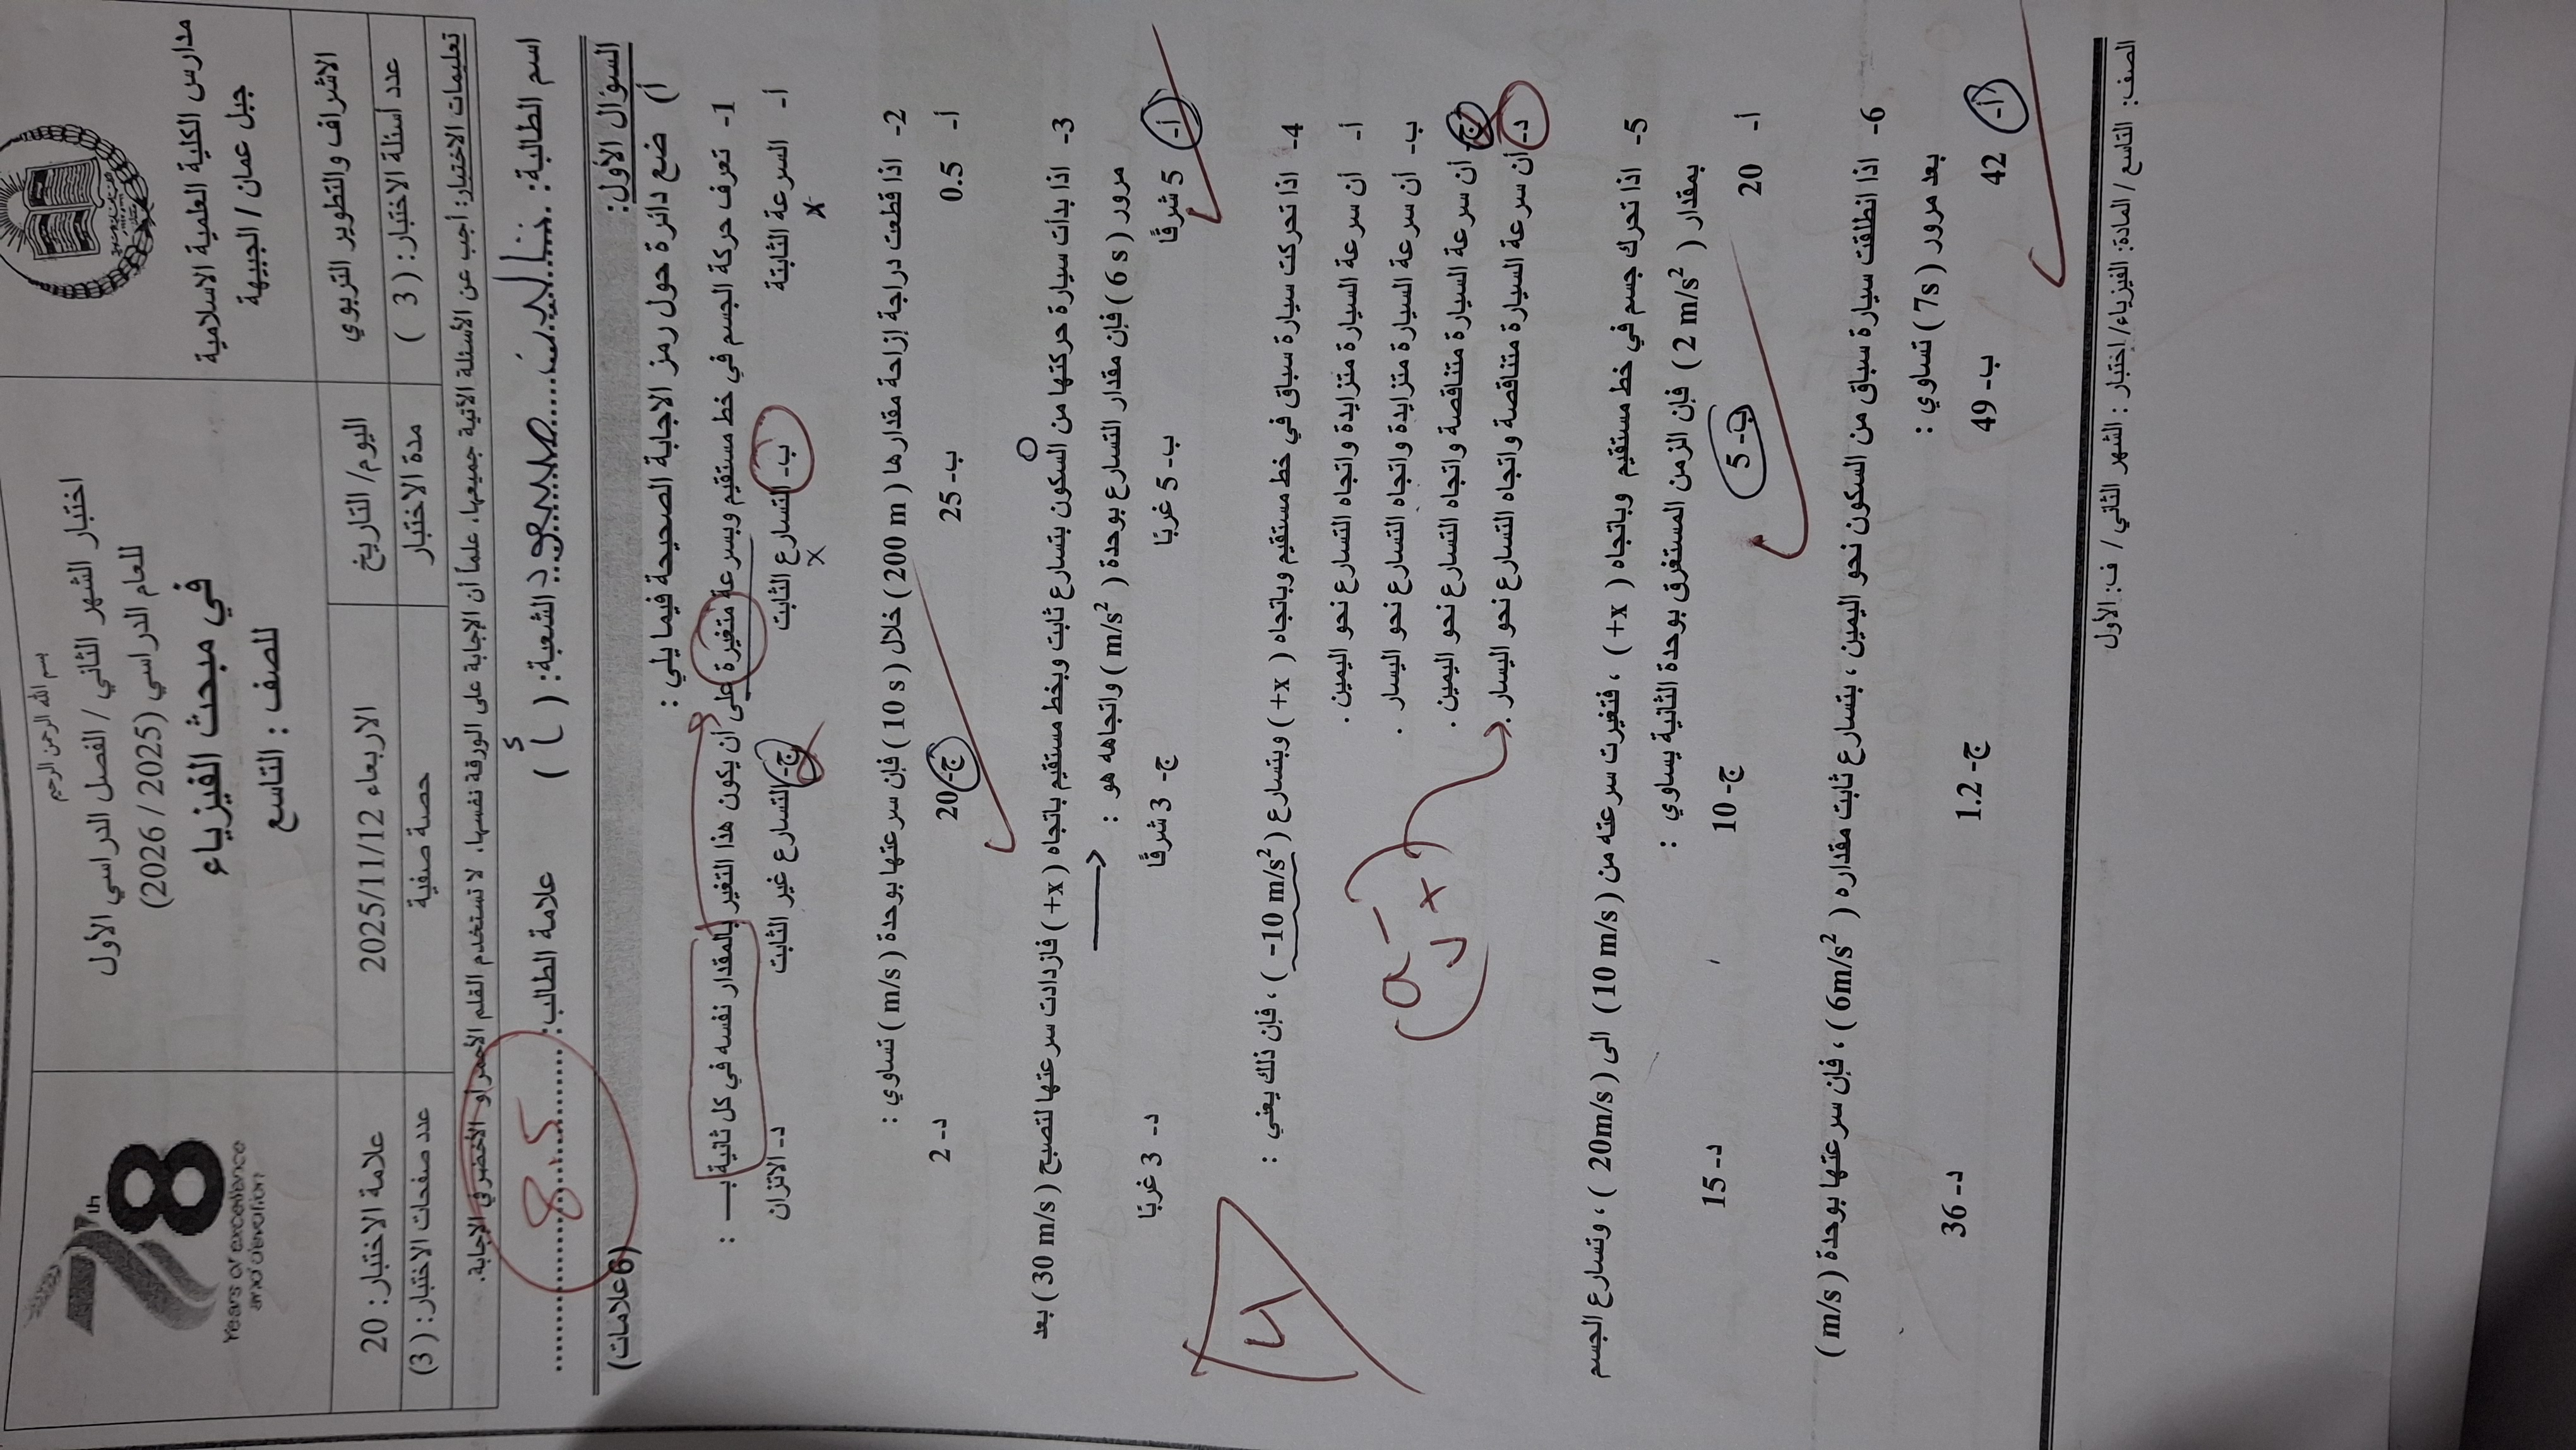 بسم الله الرحمن الرحيم
مدارس الكلية العلمية الاسلامية
جبل عمان / الجبيهة
اختبار الشهر الثاني / الفصل الدراسي الأول
للعام الدراسي (2025 / 2026)
في مبحث الفيزياء
للصف : التاسع
78th
Years of excellence
and devotion
الاشراف والتطوير التربوي
اليوم/ التاريخ
الاربعاء 2025/11/12
علامة الاختبار: 20
عدد أسئلة الاختبار: ( 3 )
مدة الاختبار
حصة صفية
عدد صفحات الاختبار: (3)
تعليمات الاختبار: أجب عن الأسئلة الآتية جميعها، علماً أن الإجابة على الورقة نفسها، لا تستخدم القلم الأحمر او الأخضر في الإجابة.
اسم الطالبة: الشعبة: ( أ ) علامة الطالب:
8.5
السؤال الأول: (6علامات)
أ) ضع دائرة حول رمز الاجابة الصحيحة فيما يلي :
1- تعرف حركة الجسم في خط مستقيم وبسرعة متغيرة على أن يكون هذا التغير بالمقدار نفسه في كل ثانية بـ :
أ- السرعة الثابتة ب- التسارع الثابت ج- التسارع غير الثابت د- الاتزان
x x
2- اذا قطعت دراجة إزاحة مقدارها ( 200 m ) خلال ( 10 s ) فإن سرعتها بوحدة ( m/s ) تساوي :
أ- 0.5 ب- 25 ج- 20 د- 2
3- اذا بدأت سيارة حركتها من السكون بتسارع ثابت وبخط مستقيم باتجاه ( +x ) فازدادت سرعتها لتصبح ( 30 m/s ) بعد
مرور ( 6 s ) فإن مقدار التسارع بوحدة ( m/s² ) واتجاهه هو :
أ- 5 شرقًا ب- 5 غربًا ج- 3 شرقًا د- 3 غربًا
4- اذا تحركت سيارة سباق في خط مستقيم وباتجاه ( +x ) وبتسارع ( -10 m/s² ) ، فإن ذلك يعني :
أ- أن سرعة السيارة متزايدة واتجاه التسارع نحو اليمين .
ب- أن سرعة السيارة متزايدة واتجاه التسارع نحو اليسار .
ج- أن سرعة السيارة متناقصة واتجاه التسارع نحو اليمين .
د- أن سرعة السيارة متناقصة واتجاه التسارع نحو اليسار .
4
5- اذا تحرك جسم في خط مستقيم وباتجاه ( +x ) ، فتغيرت سرعته من ( 10 m/s ) الى ( 20m/s ) ، وتسارع الجسم
بمقدار ( 2 m/s² ) فإن الزمن المستغرق بوحدة الثانية يساوي :
أ- 20 ب- 5 ج- 10 د- 15
6- اذا انطلقت سيارة سباق من السكون نحو اليمين ، بتسارع ثابت مقداره ( 6m/s² ) ، فإن سرعتها بوحدة ( m/s )
بعد مرور ( 7s ) تساوي :
أ- 42 ب- 49 ج- 1.2 د- 36
الصف: التاسع / المادة: الفيزياء/ اختبار : الشهر الثاني / ف: الأول